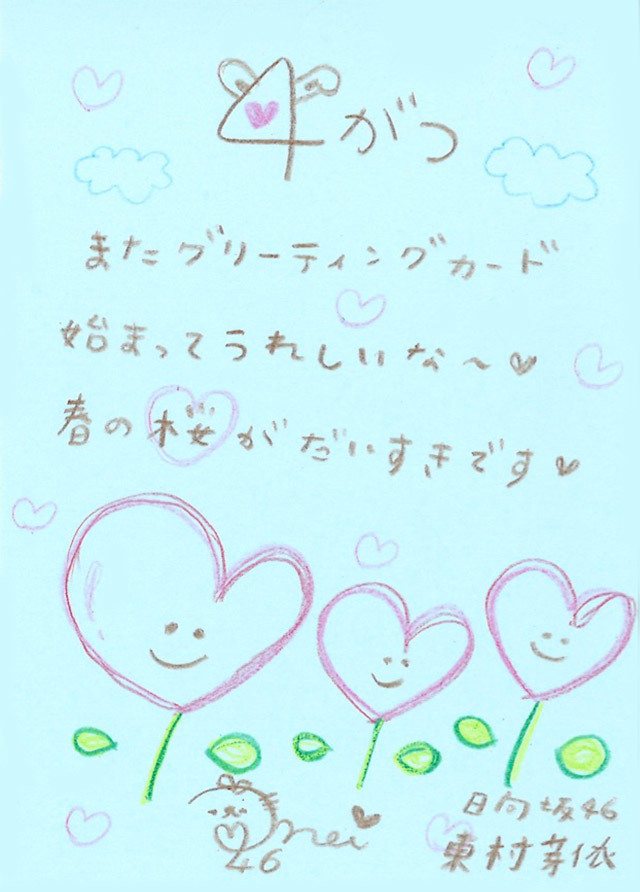 4がつ
またグリーティングカード
始まってうれしいな～♥
春の桜がだいすきです♥
mei♥
46
日向坂46
東村芽依